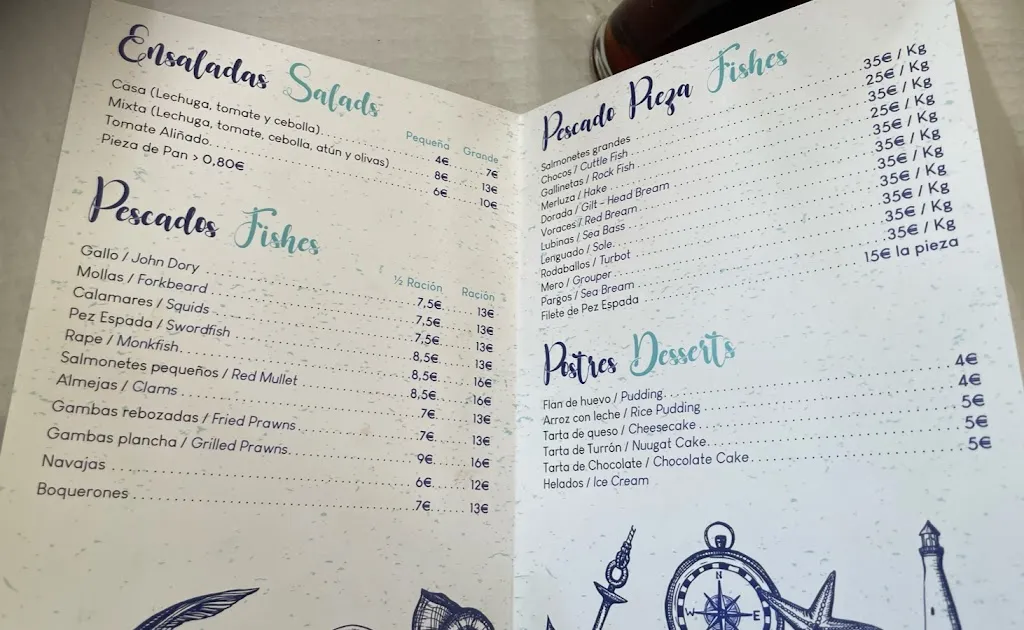 Ensaladas Salads
Pequeña Grande
Casa (Lechuga, tomate y cebolla) 4€ 7€
Mixta (Lechuga, tomate, cebolla, atún y olivas) 8€ 13€
Tomate Aliñado 6€ 10€
Pieza de Pan > 0,80€
Pescados Fishes
½ Ración Ración
Gallo / John Dory 7,5€ 13€
Mollas / Forkbeard 7,5€ 13€
Calamares / Squids 7,5€ 13€
Pez Espada / Swordfish 8,5€ 13€
Rape / Monkfish 8,5€ 16€
Salmonetes pequeños / Red Mullet 8,5€ 16€
Almejas / Clams 7€ 13€
Gambas rebozadas / Fried Prawns 7€ 13€
Gambas plancha / Grilled Prawns 9€ 16€
Navajas 6€ 12€
Boquerones 7€ 13€
Pescado Pieza Fishes
Salmonetes grandes 35€ / Kg
Chocos / Cuttle Fish 25€ / Kg
Gallinetas / Rock Fish 35€ / Kg
Merluza / Hake 25€ / Kg
Dorada / Gilt - Head Bream 35€ / Kg
Voraces / Red Bream 35€ / Kg
Lubinas / Sea Bass 35€ / Kg
Lenguado / Sole 35€ / Kg
Rodaballos / Turbot 35€ / Kg
Mero / Grouper 35€ / Kg
Pargos / Sea Bream 35€ / Kg
Filete de Pez Espada 15€ la pieza
Postres Desserts
Flan de huevo / Pudding 4€
Arroz con leche / Rice Pudding 4€
Tarta de queso / Cheesecake 5€
Tarta de Turrón / Nuugat Cake 5€
Tarta de Chocolate / Chocolate Cake 5€
Helados / Ice Cream
N
W E